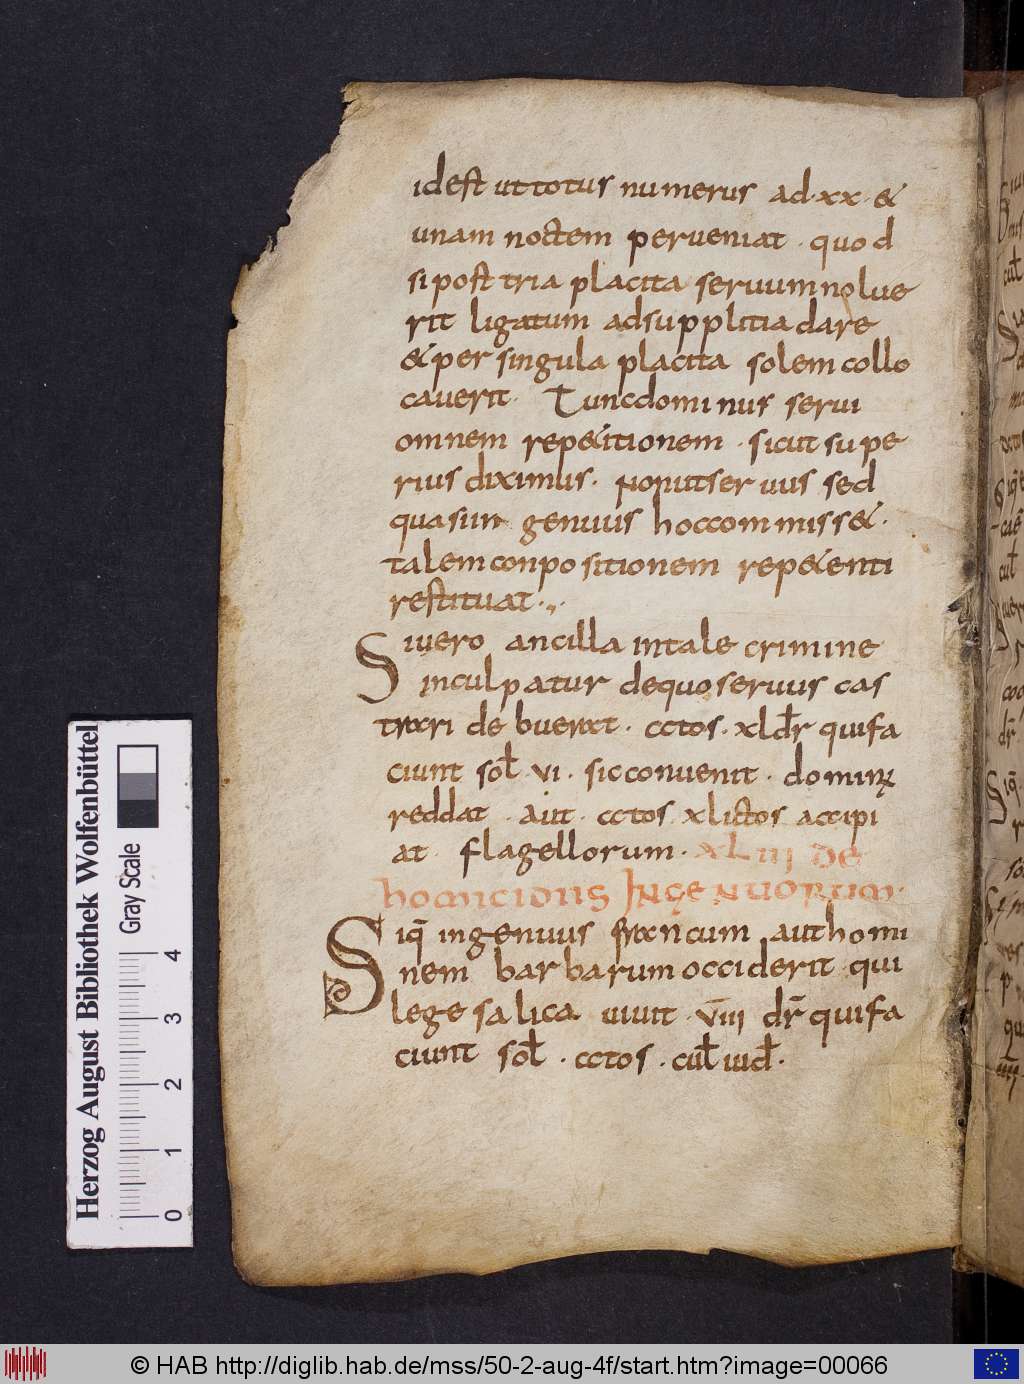 idest ut totus numerus ad · xx · &
unam noctem perveniat · quod
si post tria placita servum nolue
rit ligatum ad supplitia dare
& per singula placita solem collo
caverit · Tunc dominus servi
omnem rep&itionem · sicut supe
rius diximus · Non ut servus sed
quasi in genuus hoc commiss& ·
talem conpositionem rep&enti
restituat ·,·
Si vero ancilla in tale crimine
inculpatur de quo servus cas
trari debuerat · cctos · xl dr̄ qui fa
ciunt sol̄ · vi · sic convenit · dominus
reddat · aut · cctos xl ictos accipi
at flagellorum · XLIII DE
homicidiis INGENUORUM ·
Siq̄ ingenuus francum aut homi
nem barbarum occiderit · qui
lege salica vivit · v̄iii dr̄ qui fa
ciunt sol̄ · cctos · cul̄ iud̄ ·
Herzog August Bibliothek Wolfenbüttel
Gray Scale
0 1 2 3 4
© HAB http://diglib.hab.de/mss/50-2-aug-4f/start.htm?image=00066